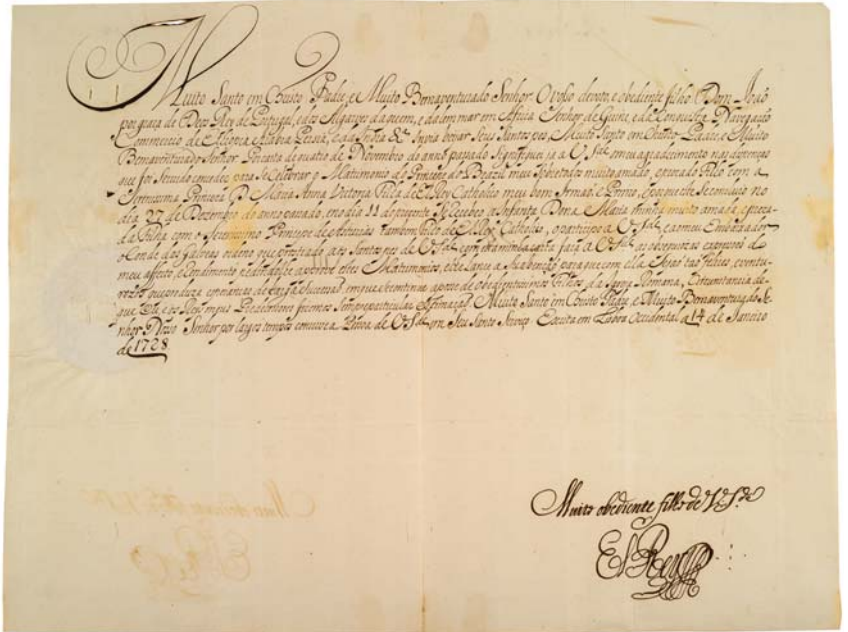 Muito Santo em Christo Padre, e Muito Bemaventurado Senhor. O vosso devoto, e obediente filho Dom João
por graça de Deos Rey de Portugal, e dos Algarves daquem, e dalem mar em Africa Senhor de Guine, e da Conquista, Navegação
Commercio de Ethiopia Arabia Persia, e da India &c. Invia beyjar Seus Santos pes, Muito Santo em Christo Padre, e Muito
Bemaventurado Senhor. Por carta de quatro de Novembro do anno passado signifiquei ja a V. S.de o meu agradecimento nas dispenças
que foi servido conceder para se Celebrar o Matrimonio do Principe do Brazil meu sobre todos muito amado, e prezado Filho com a
Serenissima Princeza D. Maria Anna Victoria Filha de El Rey Catholico meu bom Irmaõ, e Primo, e porque este se concluio no
dia 27 de Dezembro do anno passado, e no dia 11 do prezente se celebrou a Infanta Dona Maria minha muito amada, e preza-
da Filha com o Serenissimo Principe de Asturias tambem Filho de El Rey Catholico, o participo a V. S.de, e ao meu Embaixador
o Conde das Galveas ordeno que prostrado aos Santos pes de V. S.de com esta minha carta faça a V. S.de as obsequiozas expressoes do
meu affecto, e
que Eu, e os Reys meus Predecessores fizemos sempre particular estimação. Muito Santo em Christo Padre, e Muito Bemaventurado Se-
nhor Nosso Senhor por largos tempos conserve a Pessoa de V. S.de em Seu Santo Serviço. Escrita em Lisboa Occidental a 14 de Janeiro
de 1728
Muito obediente filho de V. S.de
El Rey